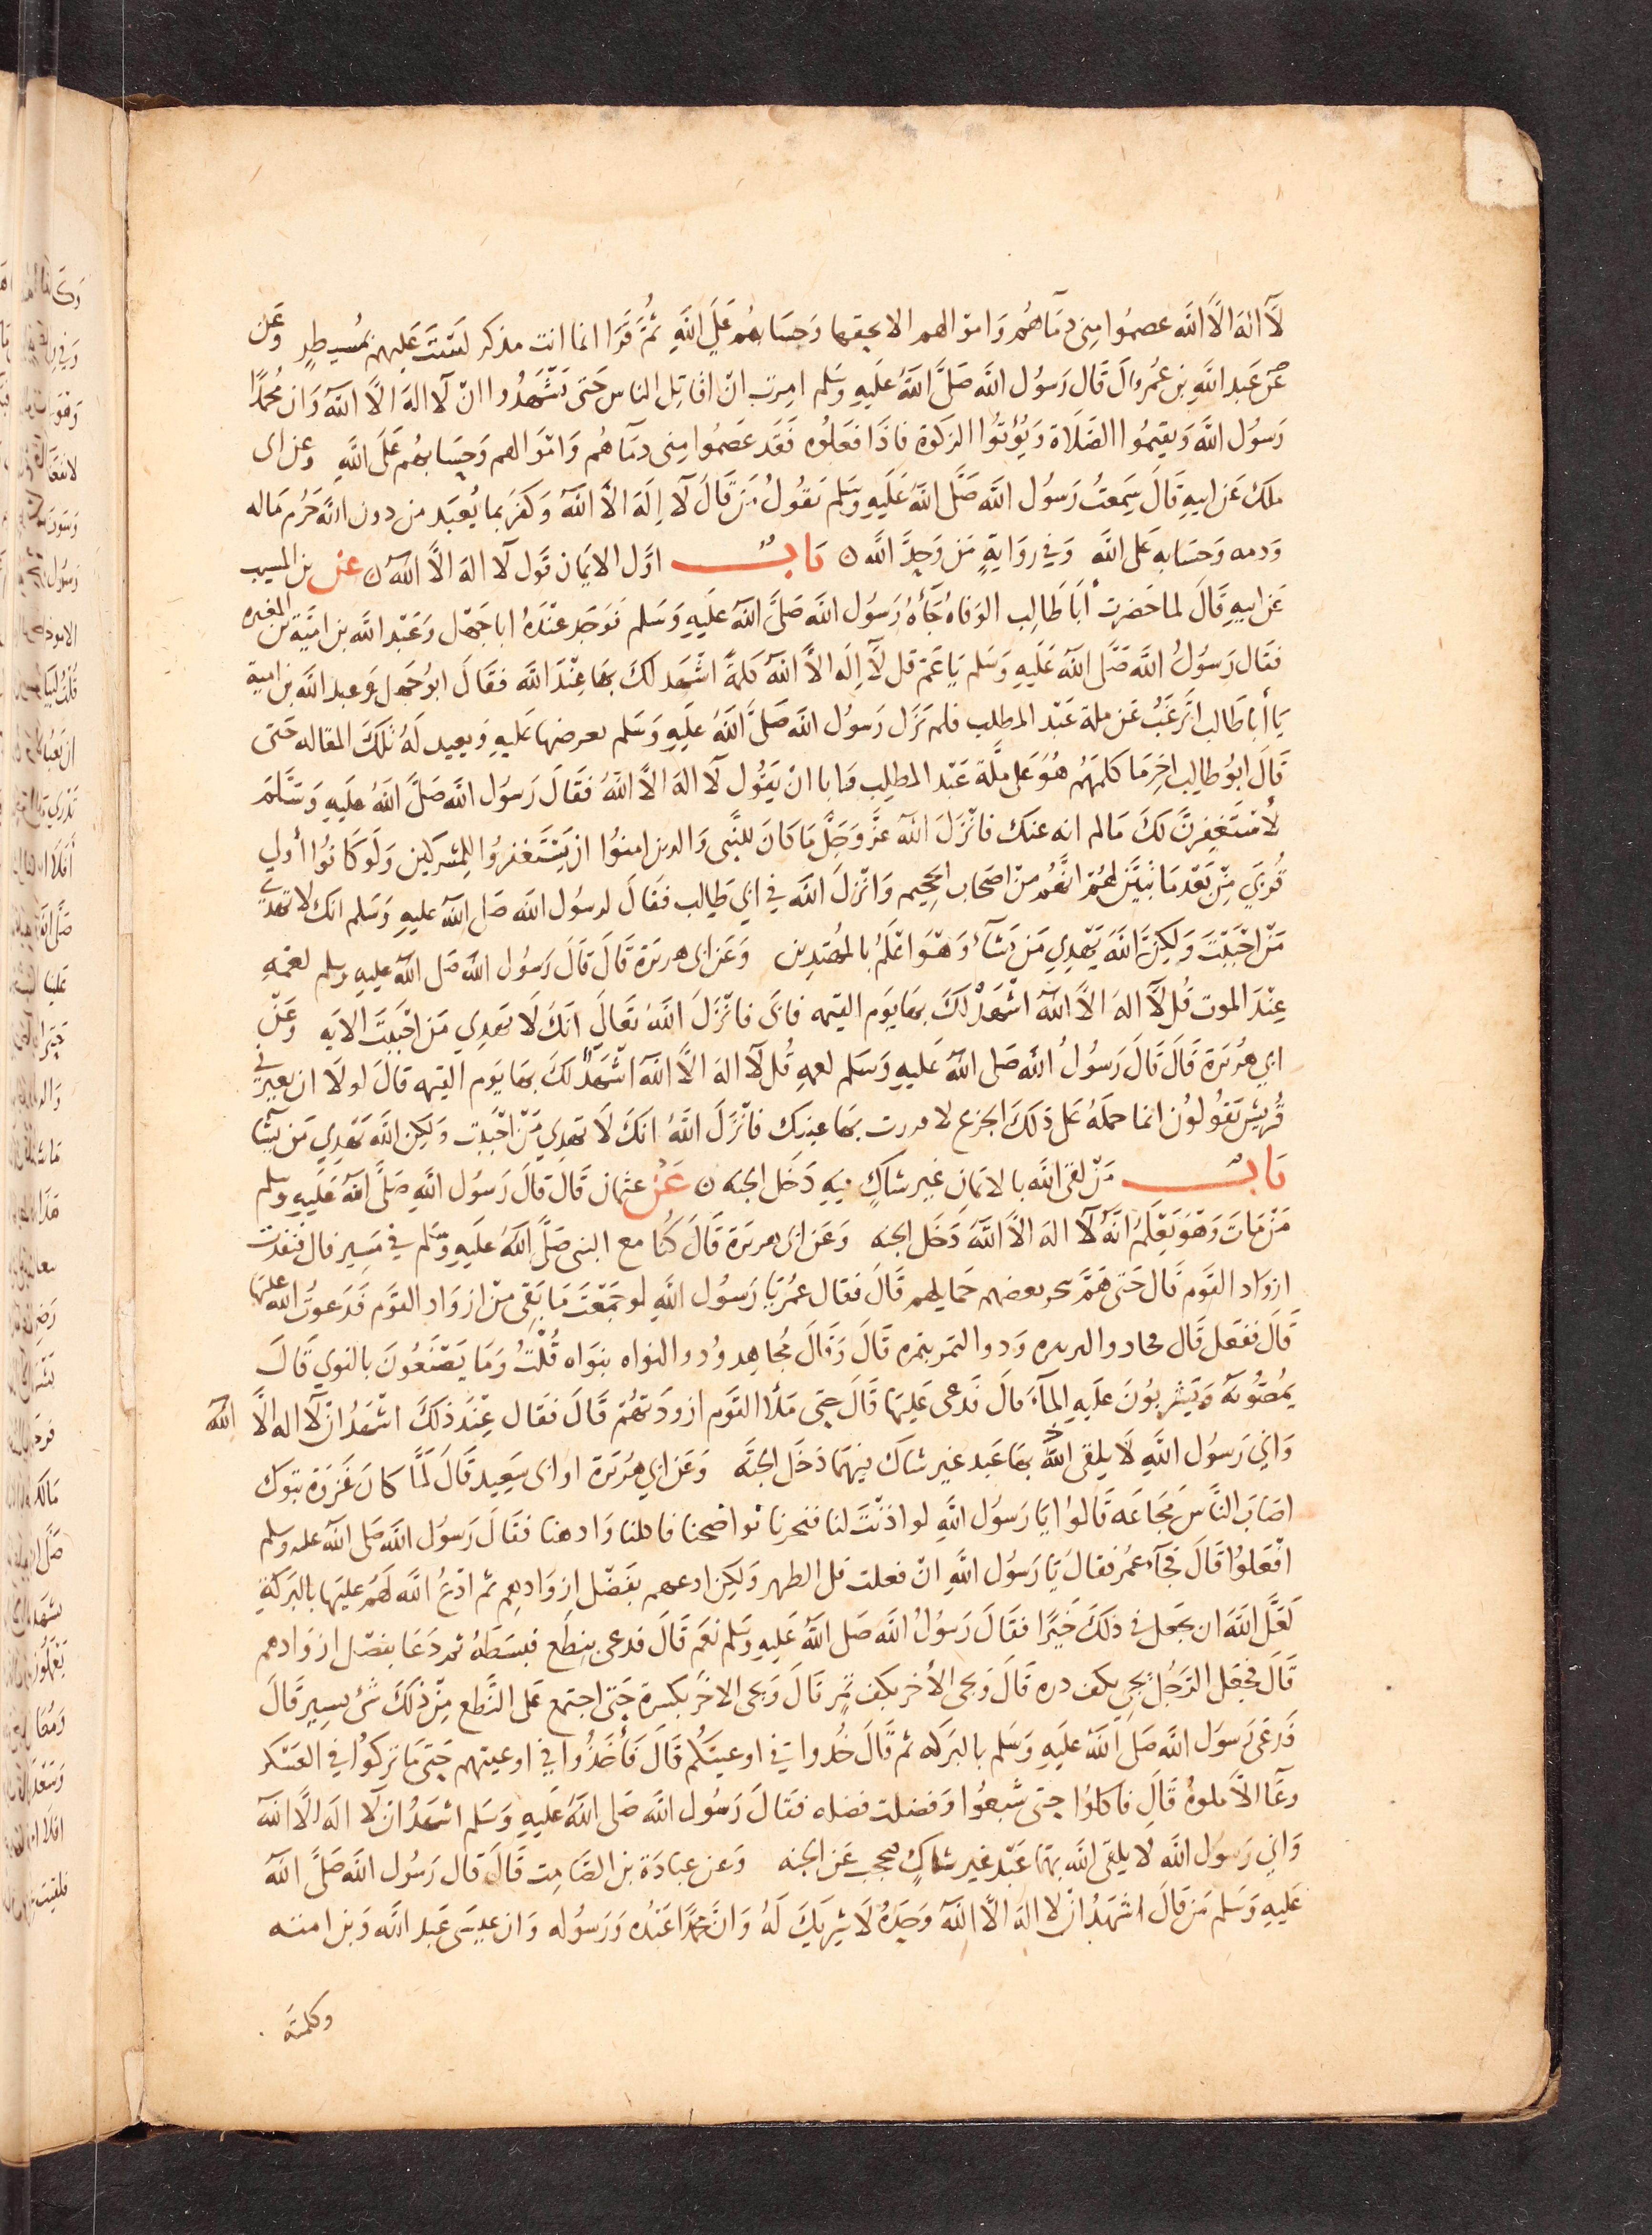 لآ اله الاَّ الله عصموا مِنى دمآهُم وَاموالهم الا بحقها وَحِسَابهُم عَلَى اللَّهِ ثُمَّ قَرَا انما انت مذكر لَسْتَ عَلَيهم بمُسيطِرٍ وعَن
عَن عَبد اللَّهِ بن عُمر وال قَال رَسُول الله صَلَّى اللَّهُ عَلَيهِ وَسَلم امِرت انْ اقاتِل الناس حَتى يَشْهَدُوا انْ لآ اله الاَّ اللَّه وَان مُحمَّدًا
رَسُول الله وَيقيمُوا الصَّلَاة وَيُؤتُوا الزكوة فاذَا فعَلوُه فَقَد عَصَمُوا مِنى دمَآهُم وَامْوَالهم وَحِسَابهُم عَلَى اللَّهِ وعن ابى
ملك عَن ابيهِ قَالَ سَمِعتُ رَسُول الله صَلَّى اللَّهُ عَلَيهِ وَسَلم يَقُولُ مَن قَالَ لآ اِلَهَ الاَّ اللَّهُ وَكفَرَ بما يُعبَد من دون الله حَرُمَ مَاله
وَدمه وَحسَابه عَلى الله وَفى رِوَايَةٍ مَن وَحَّدَ الله ن بَابٌ اوَّل الايمَان قَول لآ اله الاَّ الله ن عَن بن المسيب
عَن ابيهِ قَالَ لما حَضرت أَبَا طَالِب الوَفاه جَآءهُ رَسُول الله صَلَّى اللَّهُ عَلَيهِ وَسَلم فَوَجَد عِنْدَهُ ابا جَهْل وَعَبْد الله بن اميَّة بن المغيره
فقَال رَسُولُ الله صَلَّى اللَّهُ عَلَيهِ وَسَلم يَا عَم قل لَآ اِلَه الاَّ اللَّهُ كلمَةً اشْهَد لَكَ بها عِنْدَ الله فقَالَ ابوُجَهل وَعبد الله بن امية
يَا أبا طَالب اتَرْغَبُ عَن ملة عَبْد المطلب فلم يَزَل رَسُول الله صَلَّى اللَّهُ عَلَيهِ وَسَلم يعرضها عَليهِ وَيعيد لَهُ تلكَ المقاله حَتى
قَالَ ابُو طالِب اخِر مَا كلمَهُم هُوَ عَلى ملَّة عَبْد المطلِب وَابا انْ يَقُول لَآ اله الاَّ اللَّهُ فقَالَ رَسُول الله صَلَّى اللَّهُ عَلَيهِ وَسَلَّم
لأستَغفِرَنَّ لكَ مَالم انه عنك فانْزَلَ اللَّهُ عَزَّ وَجَلَّ مَا كَانَ للنَّبى وَالدين امنُوا ان يَسْتَغفرُوا للمُشركين وَلَو كَانُوا أُولي
قُربَي مِن بَعْد مَا تَبَيَّن لهُم انَّهُم مِنْ اصحَاب الجَحِيم وَانْزلَ الله فى ابى طَالب فَقَالَ لرسُول الله صَلى اللَّه عَليهِ وَسَلم انك لا تهدي
مَنْ احْبَبْتَ وَلَكِنَّ اللَّهَ يَهْدِي مَن يَشآء وَهُوَ اعْلَمُ بالمُهْتَدِين وَعَن ابى هريرة قَالَ قَالَ رَسُول الله صَلى اللَّه عليهِ وسلم لعمِّهِ
عِنْدَ الموت قُل لآ اله الاَّ اللَّه اشْهَدْ لَكَ بهَا يَوم القيمه فابى فانْزَلَ اللَّهُ تَعَالَى انكَ لَا تَهدِي مَن احْبَبْتَ الايَه وعَن
ابي هُرَيرَة قَالَ قَالَ رَسُولُ الله صَلى اللَّهُ عَلَيهِ وَسَلم لعمهِ قُل لآ اله الاَّ اللَّه اشْهَدُ لَكَ بهَا يَوم القيمه قالَ لولَا ان يعيرنى
قُريش يَقُولُون انما حملَهُ عَلى ذلَكَ الجزع لاقررت بهَا عينك فانْزَلَ اللَّهُ انكَ لَا تهدِي مَنْ احْبَبت وَلكِن الله يَهدِي مَن يشَآ
بَابٌ مَنْ لقى الله بالايمَان غير شاكٍ فيهِ دَخَل الجنه ن عَن عثمان قَالَ قالَ رَسُول الله صَلَّى اللَّهُ عَلَيهِ وسلم
مَنْ مَاتَ وَهُوَ يَعْلَمُ انَّهُ لآ اله الاَّ اللَّهُ دَخَل الجنه وَعَن ابى هريرَة قَالَ كُنا مع النبى صَلَّى اللَّهُ عَلَيهِ وَسَلم فى مَسِير قال فنفدت
ازوَاد القوم قَال حَتى هَمَّ بنحر بعضهم حَمايلهم قَالَ فقال عُمَر يَا رَسُول اللَّهِ لو جَمَعْتَ مَا بَقِى مِنْ ازوَاد القوَم فدَعوتُ الله عليها
قَالَ ففعَل قَال فجآ ذو البر ببره وَذو التمر بتمره قَالَ وَقَالَ مُجَاهِد وُذو النواه بنوَاه قُلْتُ وَمَا يَصْنَعُونَ بالنوي قَالَ
يَمُصّونَهُ وَيَشربوُنَ عَلَيهِ المآء قالَ فَدعى عَلِيهَا قَالَ حَتى مَلأ القَوم ازودَتهُم قَالَ فقال عِنْدَ ذلَكَ اشْهَدُ انْ لآ اله الاَّ الله
وَانى رَسُول اللَّهِ لَا يلقى اللَّهُ بهَا عَبد غير شاك فيهمَا دَخَل الجنَّه وَعَن ابي هُرَيرَة او ابى سَعِيد قَالَ لَمَّا كانَ غَزوَة تبَوك
اصَابَ النَّاسَ مجَاعَه قَالوُا يَا رَسُول اللَّهِ لو اذنْتَ لنا فنحرنا نوَاضحنا فاكلنا وَادهنا فقَالَ رَسُول الله صَلى اللَّهُ عليه وسلم
افعَلوُا قَالَ فجآء عُمر فقالَ يَا رَسُول اللَّهِ انْ فعلت قل الظهر وَلكِن ادعهم بفَضْل ازوَادِهِم ثم ادْعُ اللَّه لَهُم عليهَا بالبَركَةِ
لَعَلَّ اللَّه ان يجعَل فى ذلَكَ خَيْرًا فقَالَ رَسُولُ الله صَلى اللَّهُ عَلَيهِ وَسَلم نعَم قَالَ فدعى بنِطَع فبسَطَهُ ثم دَعَا بفضل ازوَادهم
قَالَ فجعَل الرَجُلُ يجى بكف دره قَالَ وَيجى الأخر بكف تمرٍ قَالَ وَيجى الاخر بكسرة حَتى اجتمع عَلى النَّطع مِنْ ذلَكَ شئ يسير قَالَ
فَدعى رَسول الله صَلَى اللَّهُ عَلَيهِ وَسَلم بالبَركه ثم قَالَ خُدوا فى اوعيتكم قَالَ فَأخَذُوا في اوعيتهم حَتى مَا تركوُا في العَسْكر
وعَآءا الاَّ ملوهُ قَال فاكلوُا حتى شَبعُوا وَفضلت فضله فقَالَ رَسُول الله صَلى اللَّهُ عَلَيهِ وَسَلم اشهَدُ انْ لآ اله الاَّ الله
وَانى رَسُول الله لا يلقى الله بهمَا عَبْد غير شاكٍ فيحجب عَن الجنه وَعن عبَادَة بن الصَّامِت قَالَ قَال رَسُول الله صَلَّى اللَّهُ
عَلَيهِ وَسَلم مَن قَالَ اشهَدُ انْ لا اله الاَّ اللَّهُ وَحدَهُ لَا شرِيَكَ لَهُ وَانَّ محمَّدًا عَبْدُه وَرَسُوله وَان عِيسَى عَبد الله وَبن امته
وكلمته